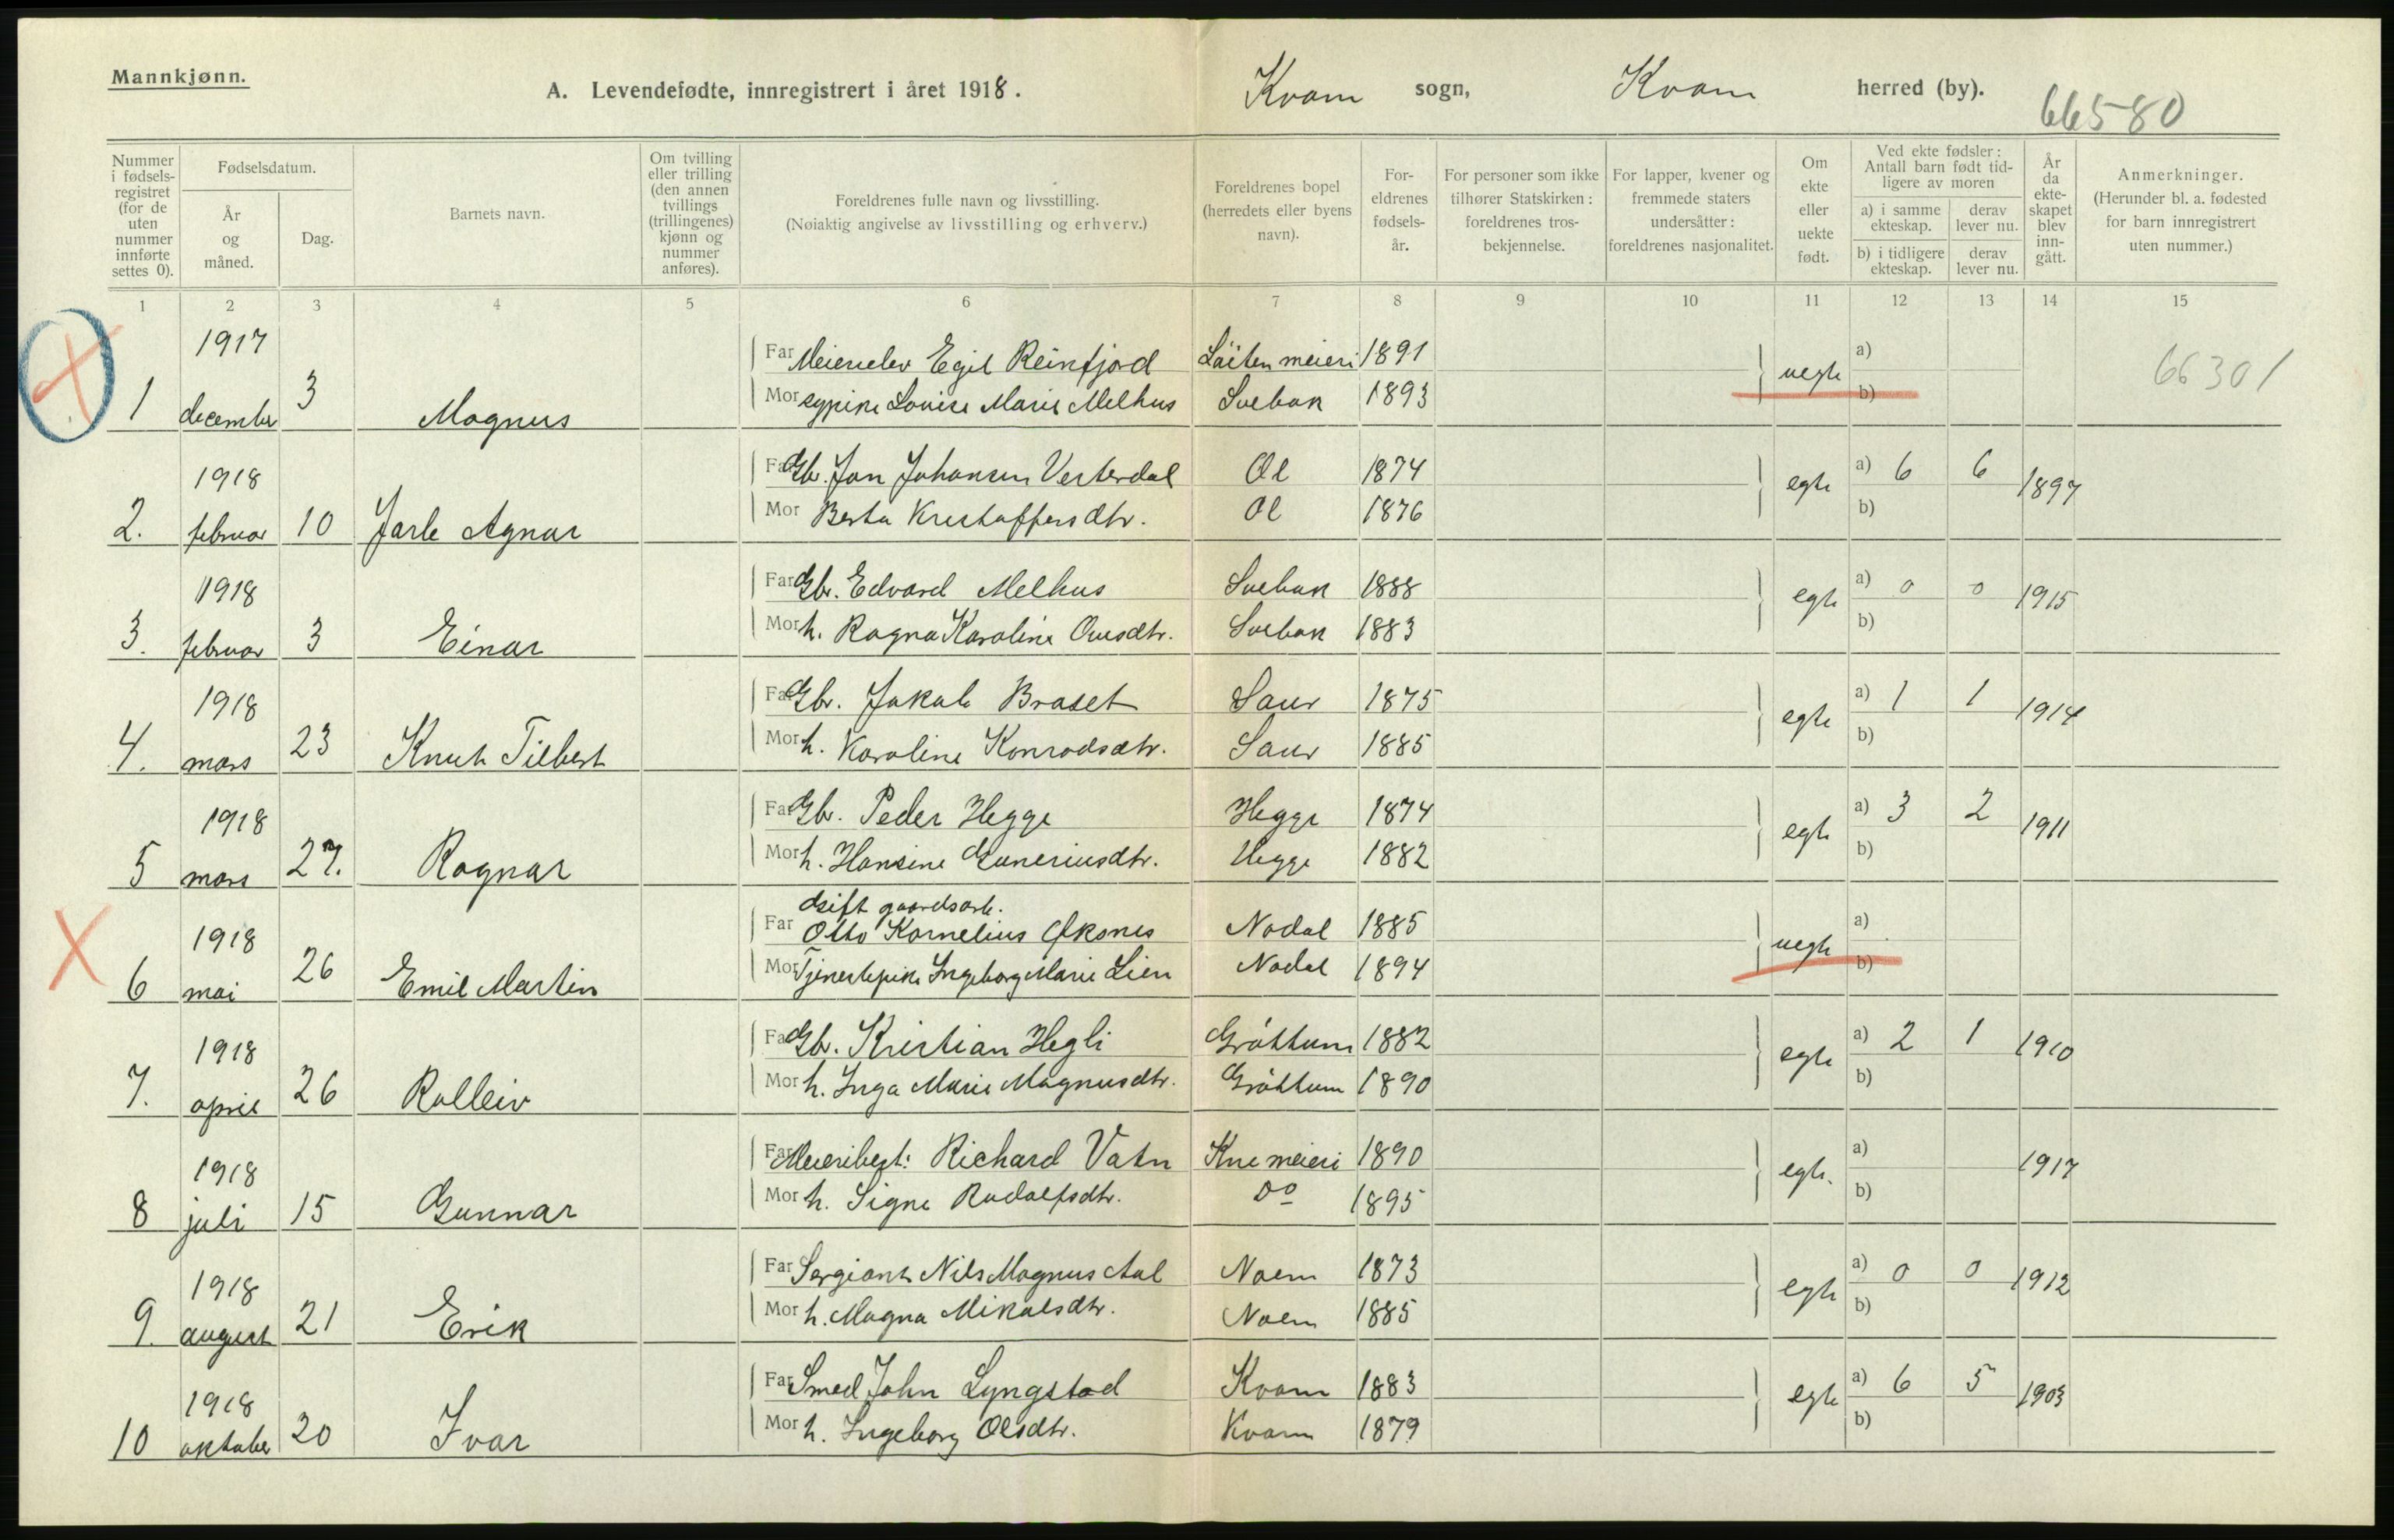 Mannkjønn.
A. Levendefødte, innregistrert i året 1918.
Kvam sogn, Kvam herred (by).
66580
Nummer i fødselsregistret (for de uten nummer innførte settes 0).
Fødselsdatum.
År og måned.
Dag.
Barnets navn.
Om tvilling eller trilling (den annen tvillings (trillingenes) kjønn og nummer anføres).
Foreldrenes fulle navn og livsstilling.
(Nøiaktig angivelse av livsstilling og erhverv.)
Foreldrenes bopel (herredets eller byens navn).
Foreldrenes fødselsår.
For personer som ikke tilhører Statskirken: foreldrenes trosbekjennelse.
For lapper, kvener og fremmede staters undersåtter: foreldrenes nasjonalitet.
Om ekte eller uekte født.
Ved ekte fødsler: Antall barn født tidligere av moren
a) i samme ekteskap.
derav lever nu.
b) i tidligere ekteskap.
derav lever nu.
År da ekteskapet blev inngått.
Anmerkninger.
(Herunder bl. a. fødested for barn innregistrert uten nummer.)
1 2 3 4 5 6 7 8 9 10 11 12 13 14 15
1917
Far Meierielev Egil Reinfjord Läiten meieri 1891 uegte a) 66301
1 december 3 Magnus
Mor sypike Lovise Marie Melhus Svebak 1893 b)
1918
Far Gbr. Jon Johansen Vesterdal Öl 1874 egte a) 6 6 1897
2. februar 10 Jarle Agnar
Mor Berta Kristoffersdtr. Öl 1876 b)
1918
Far Gbr. Edvard Melhus Svebak 1888 egte a) 0 0 1915
3. februar 3 Einar
Mor h. Ragna Karoline Ovesdtr. Svebak 1883 b)
1918
Far Gbr. Jakob Braset Saur 1875 egte a) 1 1 1914
4. mars 23 Knut Tilbert
Mor h. Karoline Konradsdtr. Saur 1885 b)
1918
Far Gbr. Peder Hegge Hegge 1874 egte a) 3 2 1911
5 mars 27. Ragnar
Mor h. Hansine Guneriusdtr. Hegge 1882 b)
1918
gift gaardsarb.
Far Otto Kornelius Øksnes Nodal 1885 uegte a)
6 mai 26 Emil Martin
Mor Tjenestepike Ingeborg Marie Lien Nodal 1894 b)
1918
Far Gbr. Kristian Hegli Gröttum 1882 egte a) 2 1 1910
7. april 26 Rolleiv
Mor h. Inga Marie Magnusdtr. Gröttum 1890 b)
1918
Far Meieribest: Richard Vatn Kne meieri 1890 egte. a) 1917
8 juli 15 Gunnar
Mor h. Signe Rudolfsdtr. Do 1895 b)
1918
Far Sergiant Nils Magnus Aal Noem 1873 egte a) 0 0 1912
9. august 21 Erik
Mor h. Magna Mikalsdtr. Noem 1885 b)
1918
Far Smed John Lyngstad Kvam 1883 egte a) 6 5 1903
10 oktober 20 Ivar
Mor h. Ingeborg Olsdtr. Kvam 1879 b)